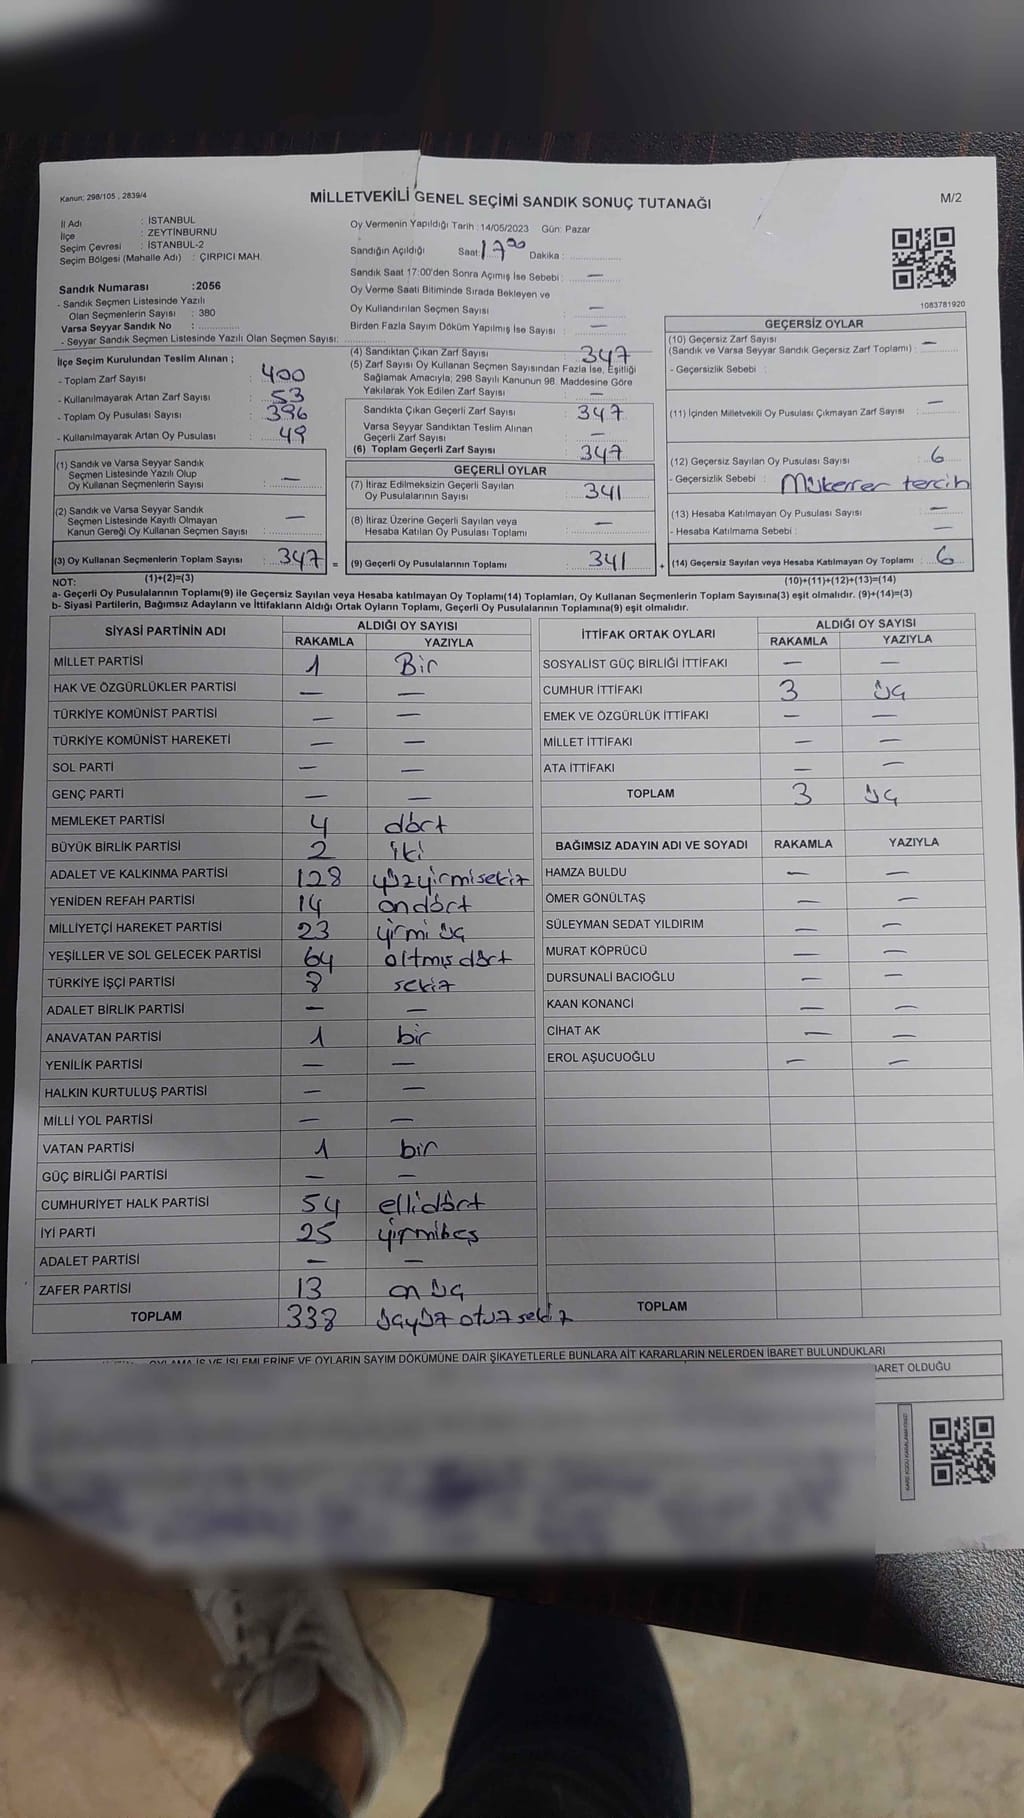 Kanun: 298/105 , 2839/4
MİLLETVEKİLİ GENEL SEÇİMİ SANDIK SONUÇ TUTANAĞI
M/2
İl Adı : İSTANBUL
İlçe : ZEYTİNBURNU
Seçim Çevresi : İSTANBUL-2
Seçim Bölgesi (Mahalle Adı) : ÇIRPICI MAH.
Oy Vermenin Yapıldığı Tarih : 14/05/2023 Gün: Pazar
Sandığın Açıldığı Saat: 17 00 Dakika :
Sandık Saat 17:00'den Sonra Açımış İse Sebebi : —
Oy Verme Saati Bitiminde Sırada Bekleyen ve
Oy Kullandırılan Seçmen Sayısı : —
Birden Fazla Sayım Döküm Yapılmış İse Sayısı : —
1083781920
Sandık Numarası :2056
- Sandık Seçmen Listesinde Yazılı
Olan Seçmenlerin Sayısı : 380
Varsa Seyyar Sandık No :
- Seyyar Sandık Seçmen Listesinde Yazılı Olan Seçmen Sayısı:
İlçe Seçim Kurulundan Teslim Alınan ;
- Toplam Zarf Sayısı : 400
- Kullanılmayarak Artan Zarf Sayısı : 53
- Toplam Oy Pusulası Sayısı : 396
- Kullanılmayarak Artan Oy Pusulası : 49
(1) Sandık ve Varsa Seyyar Sandık
Seçmen Listesinde Yazılı Olup
Oy Kullanan Seçmenlerin Sayısı : —
(2) Sandık ve Varsa Seyyar Sandık
Seçmen Listesinde Kayıtlı Olmayan
Kanun Gereği Oy Kullanan Seçmen Sayısı : —
(3) Oy Kullanan Seçmenlerin Toplam Sayısı : 347 =
(1)+(2)=(3)
(4) Sandıktan Çıkan Zarf Sayısı : 347
(5) Zarf Sayısı Oy Kullanan Seçmen Sayısından Fazla İse, Eşitliği
Sağlamak Amacıyla; 298 Sayılı Kanunun 98. Maddesine Göre
Yakılarak Yok Edilen Zarf Sayısı : —
Sandıkta Çıkan Geçerli Zarf Sayısı : 347
Varsa Seyyar Sandıktan Teslim Alınan
Geçerli Zarf Sayısı : —
(6) Toplam Geçerli Zarf Sayısı : 347
GEÇERLİ OYLAR
(7) İtiraz Edilmeksizin Geçerli Sayılan
Oy Pusulalarının Sayısı : 341
(8) İtiraz Üzerine Geçerli Sayılan veya
Hesaba Katılan Oy Pusulası Toplamı : —
(9) Geçerli Oy Pusulalarının Toplamı : 341 +
GEÇERSİZ OYLAR
(10) Geçersiz Zarf Sayısı
(Sandık ve Varsa Seyyar Sandık Geçersiz Zarf Toplamı) : —
- Geçersizlik Sebebi :
(11) İçinden Milletvekili Oy Pusulası Çıkmayan Zarf Sayısı : —
(12) Geçersiz Sayılan Oy Pusulası Sayısı : 6
- Geçersizlik Sebebi : Mükerrer tercih
(13) Hesaba Katılmayan Oy Pusulası Sayısı : —
- Hesaba Katılmama Sebebi : —
(14) Geçersiz Sayılan veya Hesaba Katılmayan Oy Toplamı : 6
(10)+(11)+(12)+(13)=(14)
NOT:
a- Geçerli Oy Pusulalarının Toplamı(9) ile Geçersiz Sayılan veya Hesaba katılmayan Oy Toplamı(14) Toplamları, Oy Kullanan Seçmenlerin Toplam Sayısına(3) eşit olmalıdır. (9)+(14)=(3)
b- Siyasi Partilerin, Bağımsız Adayların ve İttifakların Aldığı Ortak Oyların Toplamı, Geçerli Oy Pusulalarının Toplamına(9) eşit olmalıdır.
SİYASİ PARTİNİN ADI ALDIĞI OY SAYISI
RAKAMLA YAZIYLA
MİLLET PARTİSİ 1 Bir
HAK VE ÖZGÜRLÜKLER PARTİSİ — —
TÜRKİYE KOMÜNİST PARTİSİ — —
TÜRKİYE KOMÜNİST HAREKETİ — —
SOL PARTİ — —
GENÇ PARTİ — —
MEMLEKET PARTİSİ 4 dört
BÜYÜK BİRLİK PARTİSİ 2 iki
ADALET VE KALKINMA PARTİSİ 128 yüzyirmisekiz
YENİDEN REFAH PARTİSİ 14 ondört
MİLLİYETÇİ HAREKET PARTİSİ 23 yirmi üç
YEŞİLLER VE SOL GELECEK PARTİSİ 64 altmış dört
TÜRKİYE İŞÇİ PARTİSİ 8 sekiz
ADALET BİRLİK PARTİSİ — —
ANAVATAN PARTİSİ 1 bir
YENİLİK PARTİSİ — —
HALKIN KURTULUŞ PARTİSİ — —
MİLLİ YOL PARTİSİ — —
VATAN PARTİSİ 1 bir
GÜÇ BİRLİĞİ PARTİSİ — —
CUMHURİYET HALK PARTİSİ 54 ellidört
İYİ PARTİ 25 yirmibeş
ADALET PARTİSİ — —
ZAFER PARTİSİ 13 on üç
TOPLAM 338 üçyüz otuz sekiz
İTTİFAK ORTAK OYLARI ALDIĞI OY SAYISI
RAKAMLA YAZIYLA
SOSYALİST GÜÇ BİRLİĞİ İTTİFAKI — —
CUMHUR İTTİFAKI 3 üç
EMEK VE ÖZGÜRLÜK İTTİFAKI — —
MİLLET İTTİFAKI — —
ATA İTTİFAKI — —
TOPLAM 3 üç
BAĞIMSIZ ADAYIN ADI VE SOYADI RAKAMLA YAZIYLA
HAMZA BULDU — —
ÖMER GÖNÜLTAŞ — —
SÜLEYMAN SEDAT YILDIRIM — —
MURAT KÖPRÜCÜ — —
DURSUNALİ BACIOĞLU — —
KAAN KONANCİ — —
CİHAT AK — —
EROL AŞUCUOĞLU — —
TOPLAM
OYLAMA İŞ VE İŞLEMLERİNE VE OYLARIN SAYIM DÖKÜMÜNE DAİR ŞİKAYETLERLE BUNLARA AİT KARARLARIN NELERDEN İBARET BULUNDUKLARI
OLDUĞU